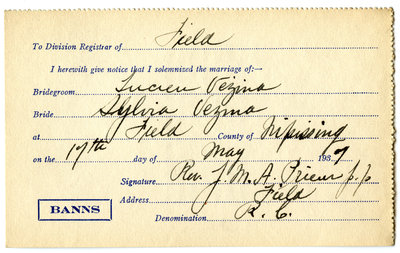 To Division Registrar of Field
I herewith give notice that I solemnized the marriage of:—
Bridegroom Lucien Vezina
Bride Sylvia Vezina
at Field County of Nipissing
on the 17th day of May 1937
Signature Rev. J. M. A. Prieur p.p
Address Field
BANNS
Denomination R. C.